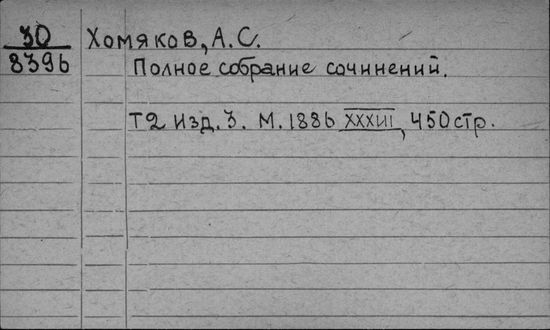 30 Хомяков, А.С.
8396 Полное собрание сочинений.
Т2 изд. 3. М. 1886 XXXIII, 450 стр.